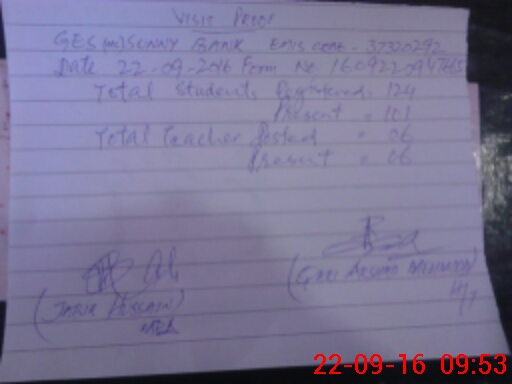 VISIT PROOF
GES (M) SUNNY BANK EMIS CODE - 37320292
Date 22-09-2016 Form No 160922
Total Students Registered: 124
Present = 101
Total Teacher Posted = 06
Present = 06
(HUSSAIN)
MEA
ARSHAD
H/T
22-09-16 09:53